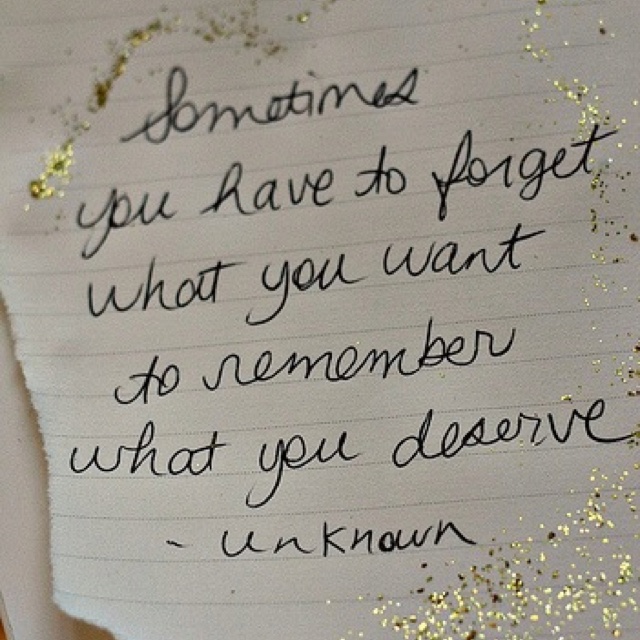 Sometimes
you have to forget
what you want
to remember
what you deserve
- unknown